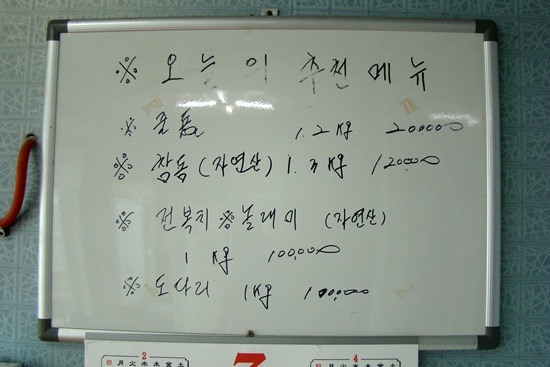 ※ 오늘의 추천 메뉴
※ 돌돔 1.2 Kg 200000
※ 참돔 (자연산) 1.3 Kg 120000
※ 전복치 ※ 놀래미 (자연산)
1 Kg 100,000
※ 도다리 1 Kg 100,000
2 3 4
日 月 火 水 木 金 土 日 月 火 水 木 金 土